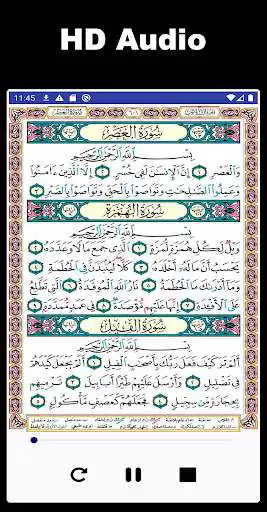 HD Audio
11:45
٦٠١
سُورَةُ العَصْرِ
بِسْمِ ٱللَّهِ ٱلرَّحْمَٰنِ ٱلرَّحِيمِ
وَٱلْعَصْرِ ١ إِنَّ ٱلْإِنسَٰنَ لَفِى خُسْرٍ ٢ إِلَّا ٱلَّذِينَ ءَامَنُوا۟
وَعَمِلُوا۟ ٱلصَّٰلِحَٰتِ وَتَوَاصَوْا۟ بِٱلْحَقِّ وَتَوَاصَوْا۟ بِٱلصَّبْرِ ٣
سُورَةُ الهُمَزَةِ
بِسْمِ ٱللَّهِ ٱلرَّحْمَٰنِ ٱلرَّحِيمِ
وَيْلٌ لِّكُلِّ هُمَزَةٍ لُّمَزَةٍ ١ ٱلَّذِى جَمَعَ مَالًا وَعَدَّدَهُۥ ٢
يَحْسَبُ أَنَّ مَالَهُۥٓ أَخْلَدَهُۥ ٣ كَلَّا لَيُنۢبَذَنَّ فِى ٱلْحُطَمَةِ ٤
وَمَآ أَدْرَىٰكَ مَا ٱلْحُطَمَةُ ٥ نَارُ ٱللَّهِ ٱلْمُوقَدَةُ ٦ ٱلَّتِى تَطَّلِعُ
عَلَى ٱلْأَفْـِٔدَةِ ٧ إِنَّهَا عَلَيْهِم مُّؤْصَدَةٌ ٨ فِى عَمَدٍ مُّمَدَّدَةٍۭ ٩
سُورَةُ الفِيلِ
بِسْمِ ٱللَّهِ ٱلرَّحْمَٰنِ ٱلرَّحِيمِ
أَلَمْ تَرَ كَيْفَ فَعَلَ رَبُّكَ بِأَصْحَٰبِ ٱلْفِيلِ ١ أَلَمْ يَجْعَلْ كَيْدَهُمْ
فِى تَضْلِيلٍ ٢ وَأَرْسَلَ عَلَيْهِمْ طَيْرًا أَبَابِيلَ ٣ تَرْمِيهِم
بِحِجَارَةٍ مِّن سِجِّيلٍ ٤ فَجَعَلَهُمْ كَعَصْفٍ مَّأْكُولٍۭ ٥